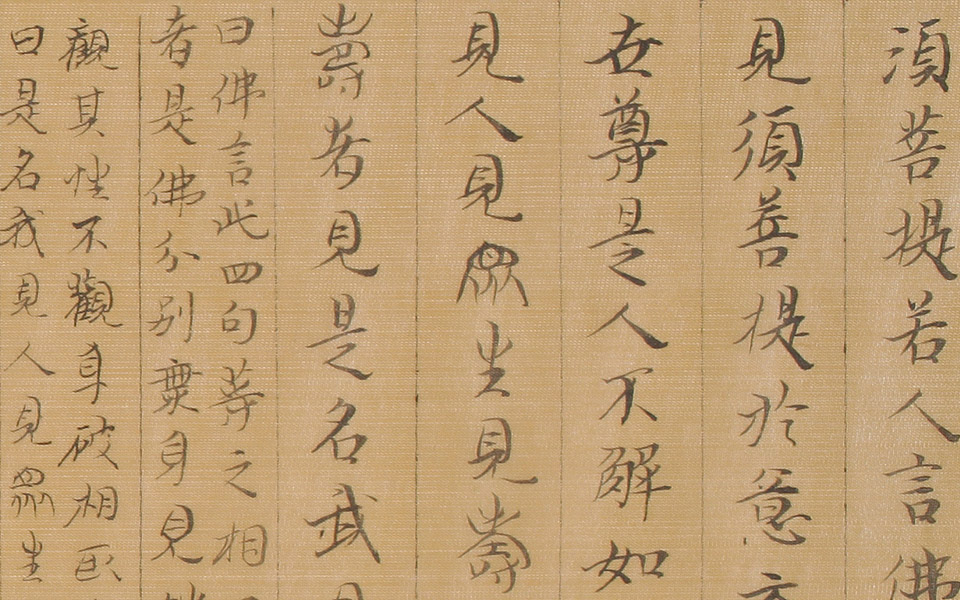 須菩提若人言佛
見須菩提於意
世尊是人不解如
見人見眾生見壽
壽者見是名我
曰佛言此四句等之相
者是佛分別麁身見
觀其性不觀身破相
曰是名我見人見眾生